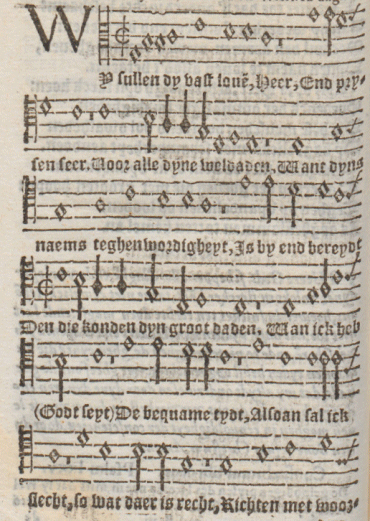 WY sullen dy vast lovē, Heer, End pry-
sen seer. Voor alle dyne weldaden, Want dyns
naems teghenwordigheyt, Is by end bereydt
Den die konden dyn groot daden. Wan ick heb
(Godt seyt) De bequame tydt, Alsdan sal ick
slecht, so wat daer is recht, Richten met woor-